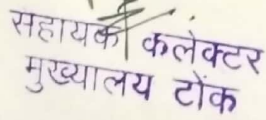 सहायक कलेक्टर
मुख्यालय टोंक